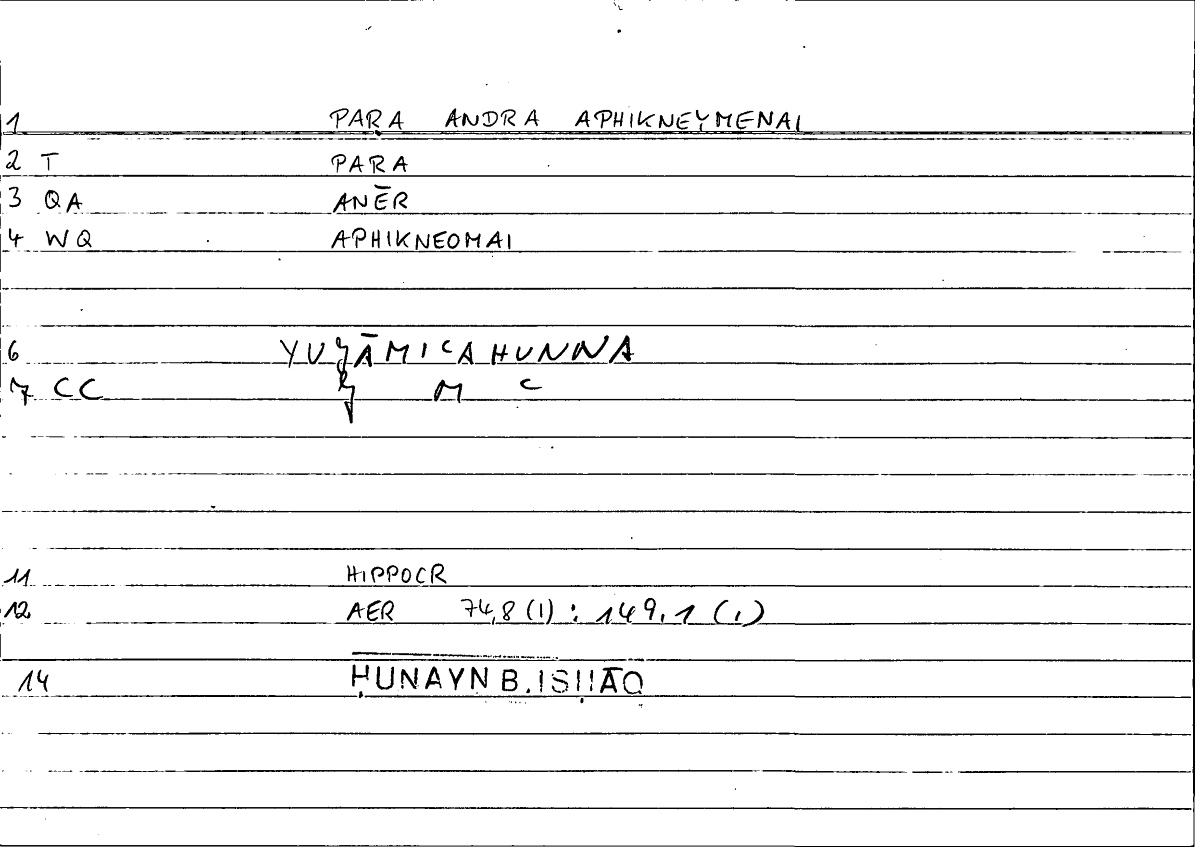 1 PARA ANDRA APHIKNEYMENAI
2 T PARA
3 QA ANĒR
4 WQ APHIKNEOMAI
6 YUǧĀMIᶜAHUNNA
7 CC ǧ M ᶜ
11 HIPPOCR
12 AER 74,8 (1) : 149,1 (1)
14 ḤUNAYN B. ISḤĀQ